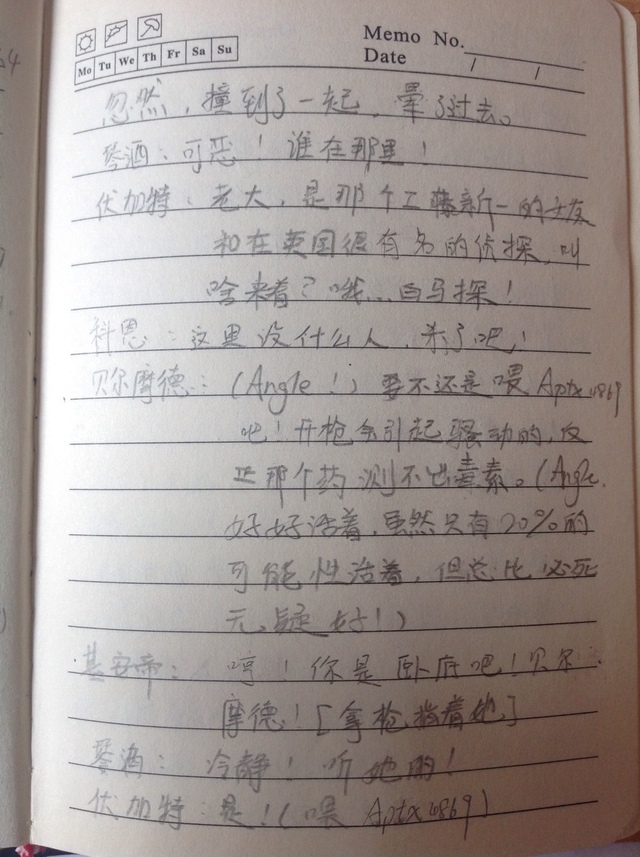 Memo No.
Date / /
Mo Tu We Th Fr Sa Su
忽然，撞到了一起，晕了过去。
琴酒：可恶！谁在那里！
伏加特：老大，是那个工藤新一的女友
和在英国很有名的侦探，叫
啥来着？哦...白马探！
科恩：这里没什么人，杀了吧！
贝尔摩德：（Angle！）要不还是喂Aptx4869
吧！开枪会引起骚动的，反
正那个药测不出毒素。（Angle，
好好活着，虽然只有20%的
可能性活着，但总比必死
无疑好！）
基安帝：哼！你是卧底吧！贝尔
摩德！[拿枪指着她]
琴酒：冷静！听她的！
伏加特：是！（喂Aptx4869）